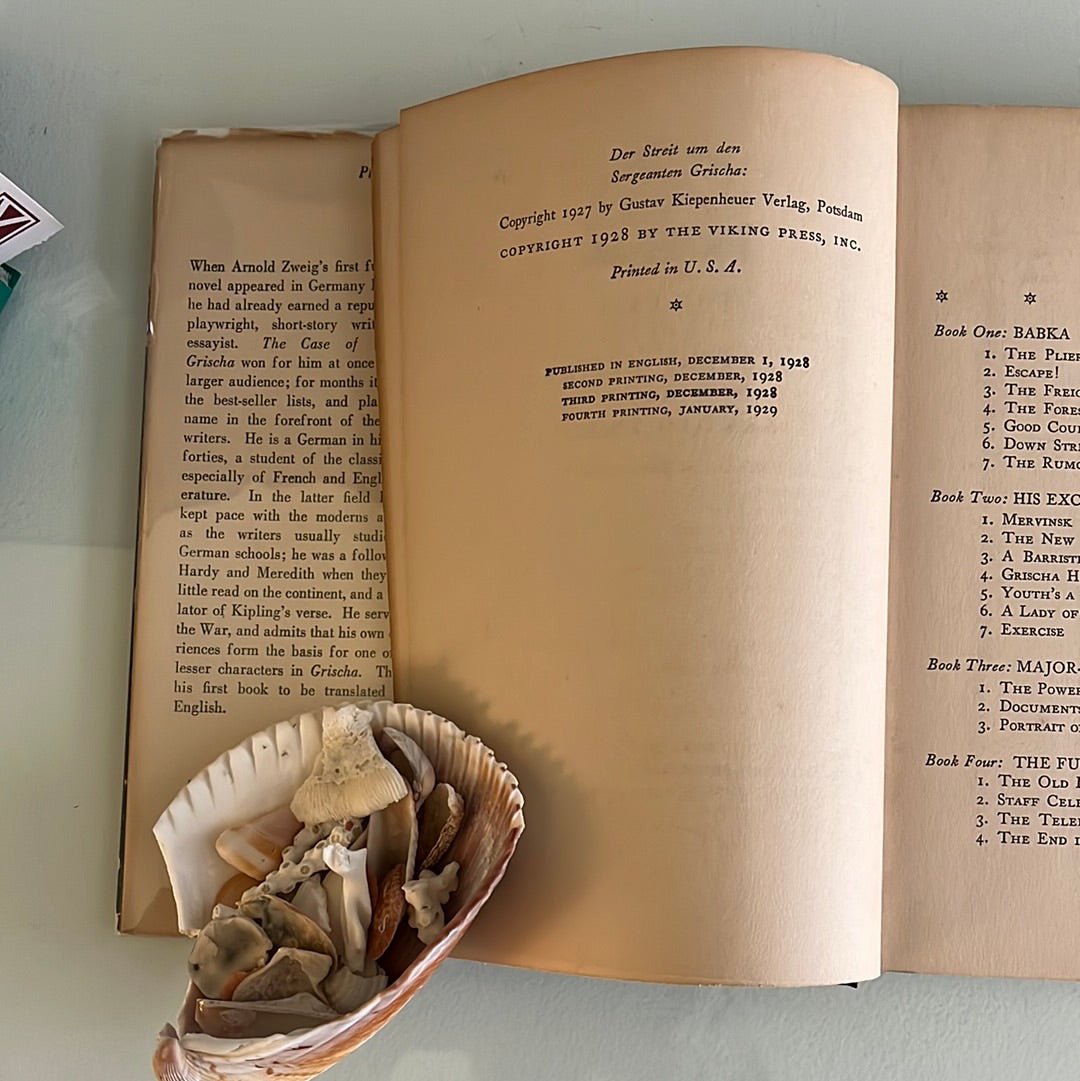 When Arnold Zweig's first
novel appeared in Germany
he had already earned a
playwright, short-story
essayist. The Case of
Grischa won for him at once
larger audience; for months
the best-seller lists, and
name in the forefront of the
writers. He is a German in
forties, a student of the
especially of French and
erature. In the latter field
kept pace with the moderns
as the writers usually
German schools; he was a
Hardy and Meredith when they
little read on the continent, and a
lator of Kipling's verse. He
the War, and admits that his own
riences form the basis for one
lesser characters in Grischa.
his first book to be translated
English.
Der Streit um den
Sergeanten Grischa:
Copyright 1927 by Gustav Kiepenheuer Verlag, Potsdam
COPYRIGHT 1928 BY THE VIKING PRESS, INC.
Printed in U. S. A.
PUBLISHED IN ENGLISH, DECEMBER 1, 1928
SECOND PRINTING, DECEMBER, 1928
THIRD PRINTING, DECEMBER, 1928
FOURTH PRINTING, JANUARY, 1929
Book One: BABKA
1. THE
2. ESCAPE!
3. THE
4. THE
5. GOOD
6. DOWN
7. THE
Book Two: HIS
1. MERVINSK
2. THE NEW
3. A
4. GRISCHA
5. YOUTH'S A
6. A LADY OF
7. EXERCISE
Book Three: MAJOR-
1. THE
2. DOCUMENTS
3. PORTRAIT
Book Four: THE
1. THE OLD
2. STAFF
3. THE
4. THE END